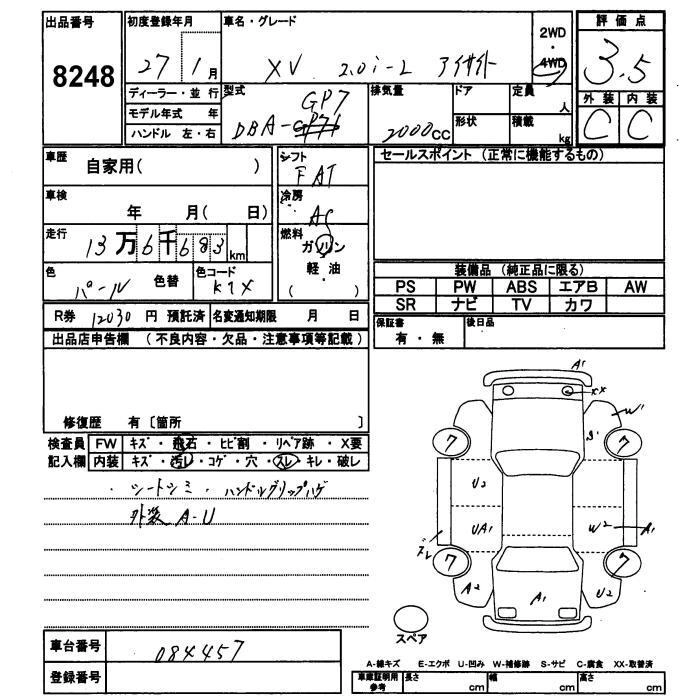 出品番号 8248
初度登録年月 27 1月
車名・グレード XV 2.0i-L アイサイト
2WD・4WD
評価点 3.5
外装 C 内装 C
ディーラー・並行
モデル年式 年
ハンドル 左・右
型式 GP7
DBA-GP71
排気量 2000CC
ドア
形状
定員 人
積載 kg
車歴 自家用( )
車検 年 月( 日)
走行 13万6千683km
色 パール 色替
色コード K1X
シフト FAT
冷房 AC
燃料 ガソリン
軽油
( )
セールスポイント (正常に機能するもの)
装備品 (純正品に限る)
PS PW ABS エアB AW
SR ナビ TV カワ
保証書 有・無
後日品
R券 12030 円 預託済 名変通知期限 月 日
出品店申告欄 (不良内容・欠品・注意事項等記載)
修復歴 有〔箇所 〕
検査員 FW キズ・飛石・ヒビ割・リペア跡・X要
記入欄 内装 キズ・汚レ・コゲ・穴・スレ・キレ・破レ
・シートシミ・ハンドルグリップハゲ
外装 A-U
A1
XX
W1
S1
7 7
U2
UA1
W2
A1
ズレ
7 7
A2
A1
U2
スペア
車台番号 084457
登録番号
A-線キズ E-エクボ U-凹み W-補修跡 S-サビ C-腐食 XX-取替済
車庫証明用参考 長さ cm 幅 cm 高さ cm